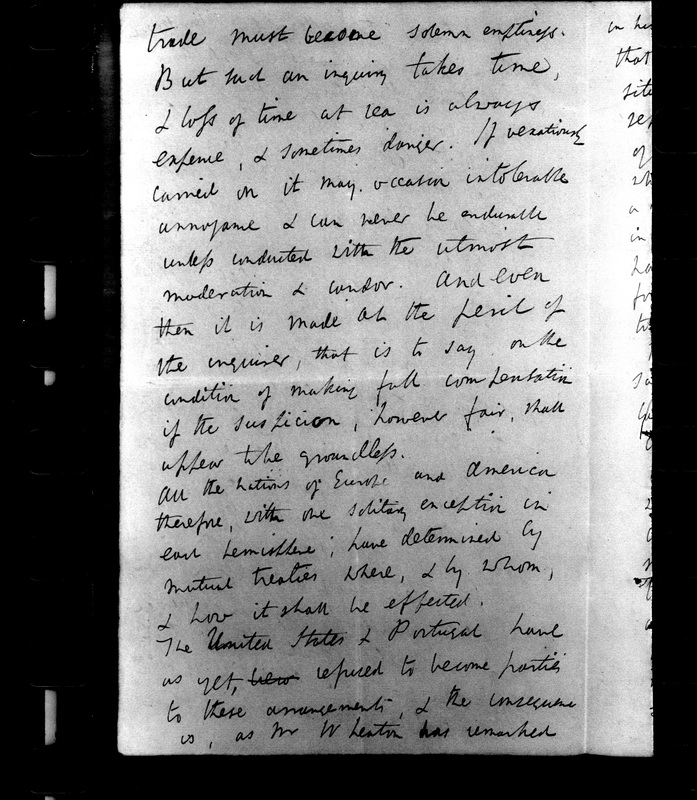 trade must become solemn emptiness.
But such an inquiry takes time,
& loss of time at sea is always
expense, & sometimes danger. If vexatiously
carried on it may occasion intolerable
annoyance & can never be endurable
unless conducted with the utmost
moderation & candor. And even
then it is made at the peril of
the inquirer, that is to say on the
condition of making full compensation
if the suspicion, however fair, shall
appear to be groundless.
All the Nations of Europe and America
therefore, with one solitary exception in
each hemisphere, have determined by
mutual treaties where, & by whom,
& how it shall be effected.
The United States & Portugal have
as yet, refused to become parties
to these arrangements, & the consequence
is, as Mr Wheaton has remarked
in his
that
site
of
a
in